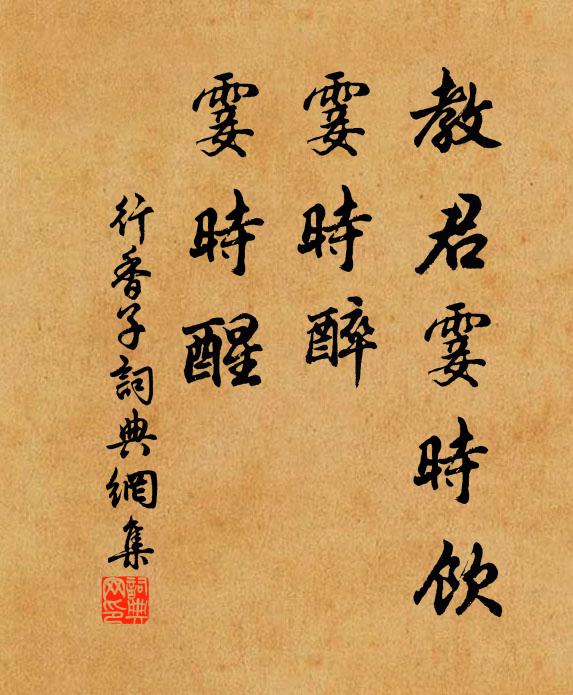 教君霎時飲
霎時醉
霎時醒
行香子詞典網集
詞典网印